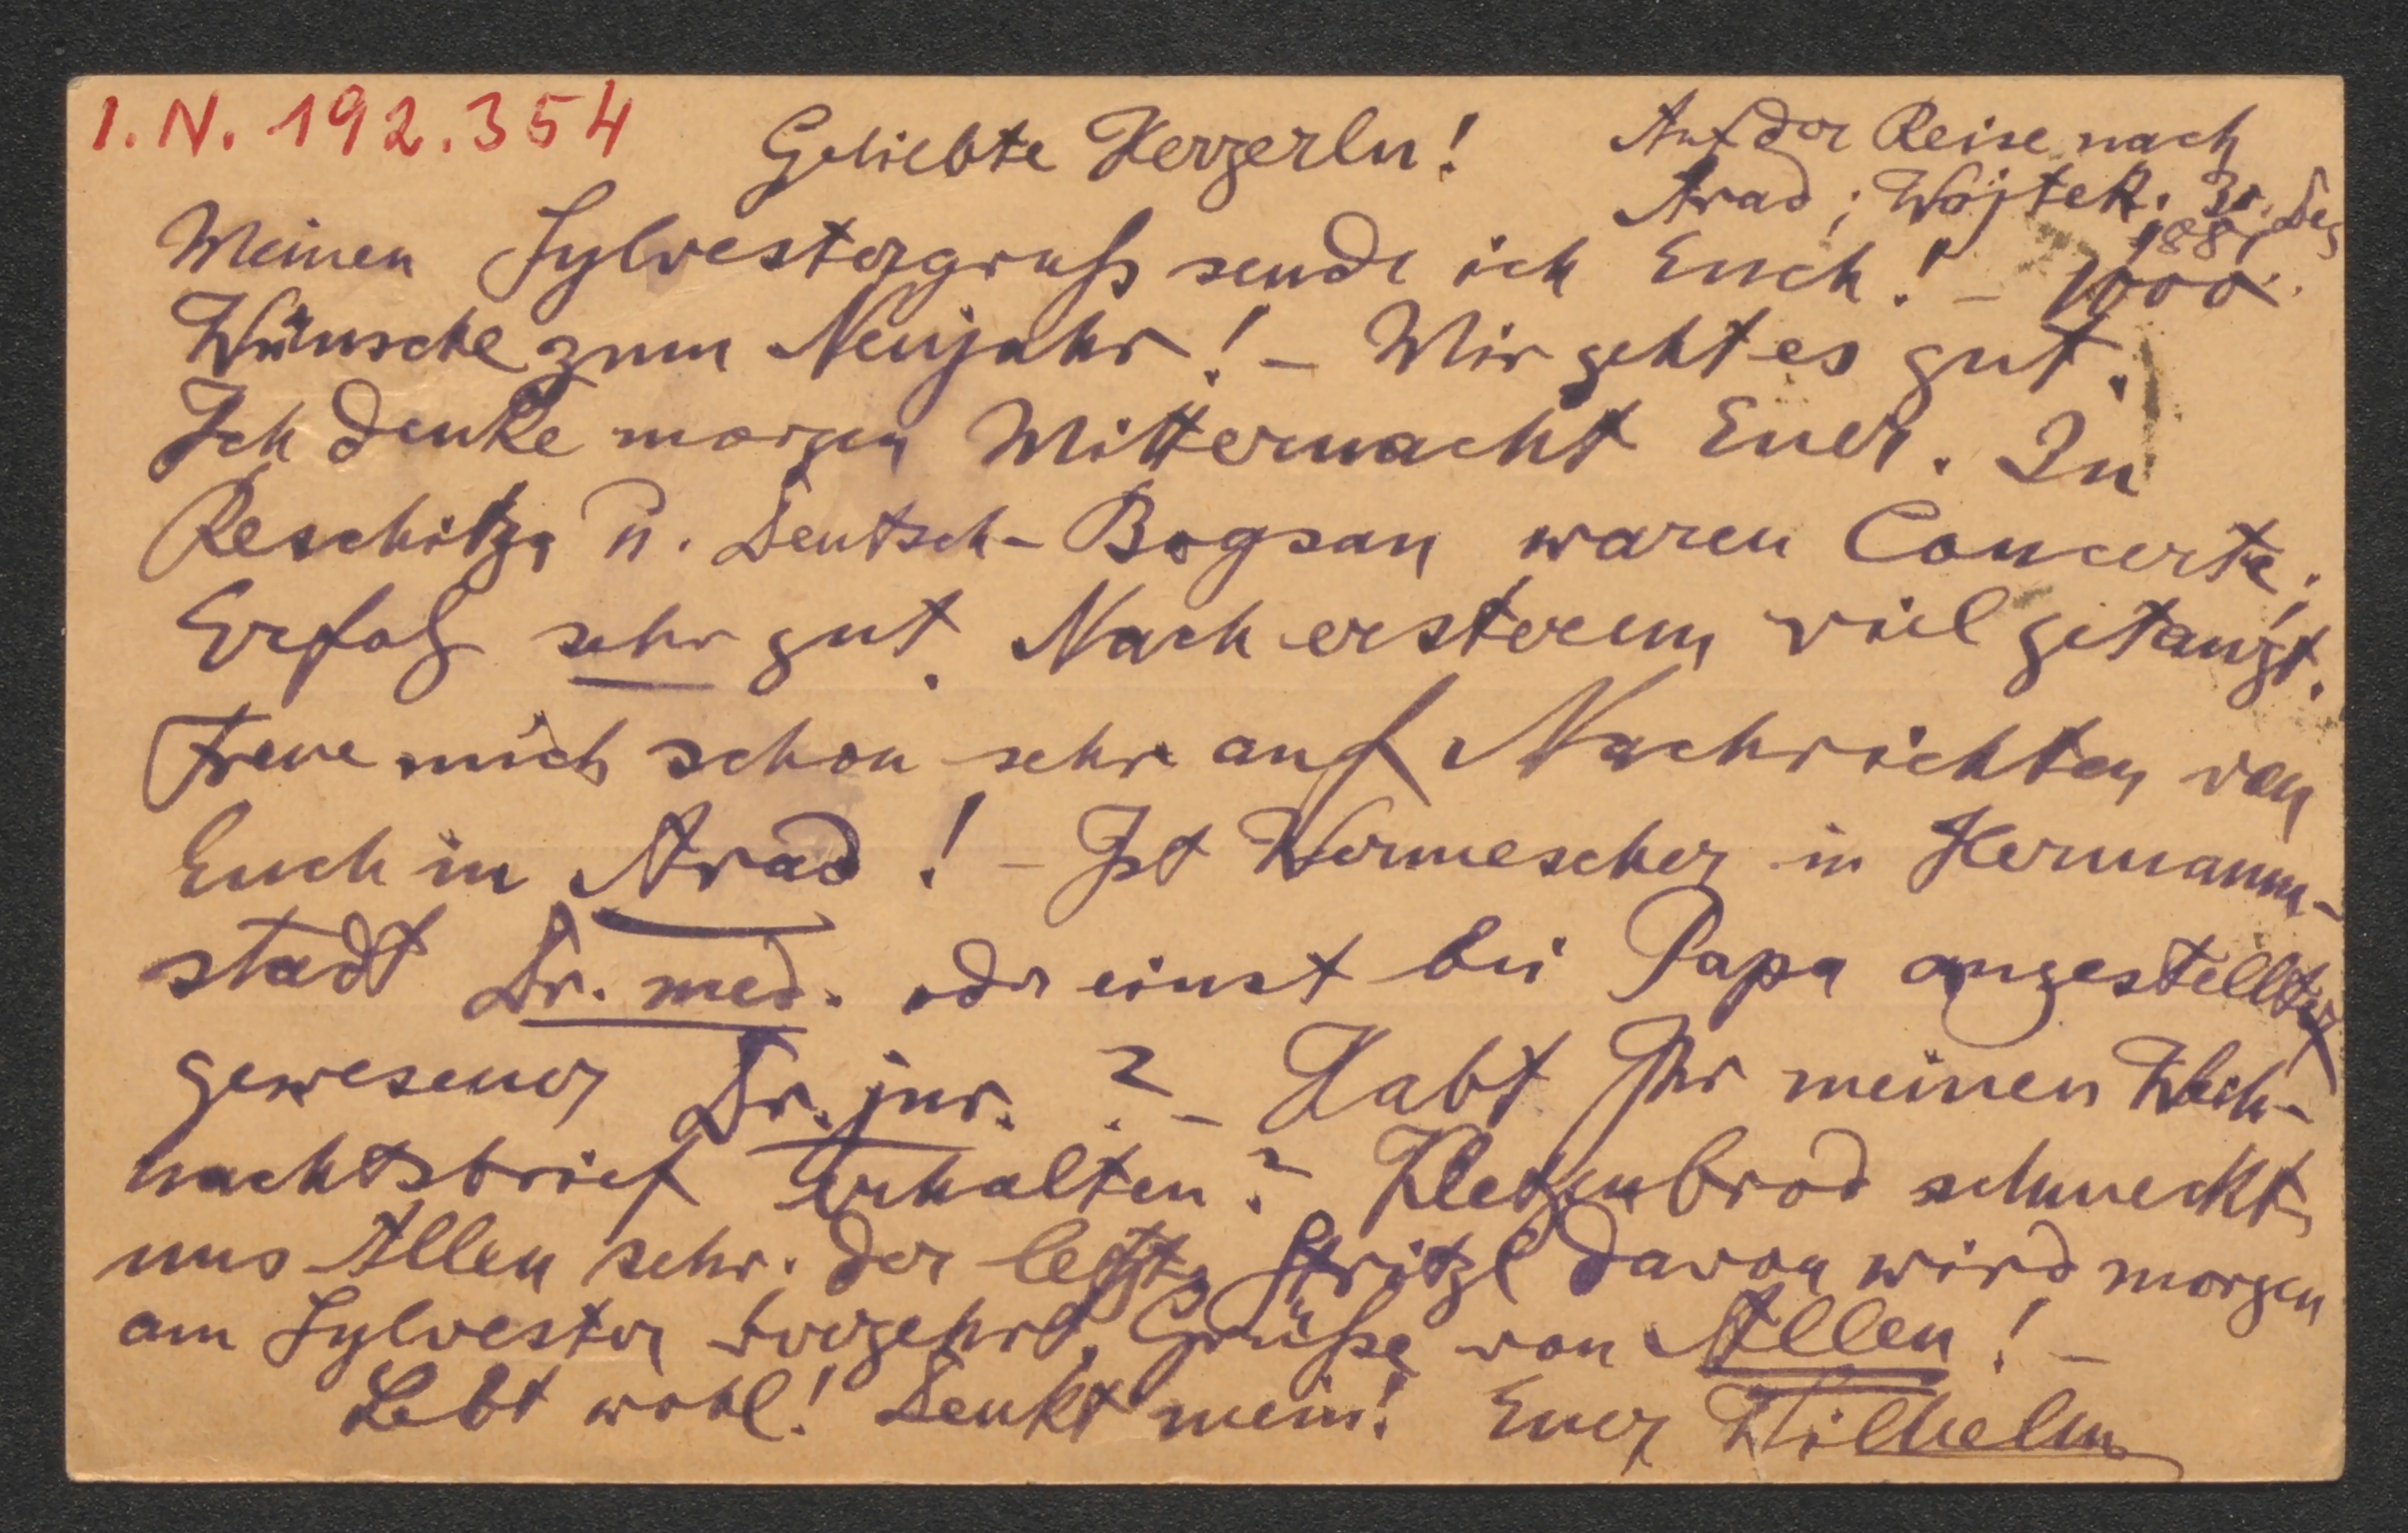 I.N. 192.354
Geliebte Herzerln!
Auf der Reise nach
Arad; Wojtek. 30. Dez
188
Meinen Sylvestergruß sende ich Euch! – 1000
Wünsche zum Neujahr! – Mir geht es gut.
Ich denke morgen Mitternacht Euer. In
Reschitza u. Deutsch-Bogsan waren Concerte;
Erfolg sehr gut. Nach ersterem viel getanzt.
Freue mich schon sehr auf Nachrichten von
Euch in Arad! – Ist Wermescher in Hermann-
stadt Dr. med. oder einst bei Papa angestellter
gewesener Dr. jur.? – Habt Ihr meinen Weih-
nachtsbrief erhalten? Kletzenbrod schmeckt
uns Allen sehr. Der letzte Stritzl davon wird morgen
am Sylvester verzehrt. Grüße von Allen! –
Lebt wohl! Denkt mein! Euer Wilhelm